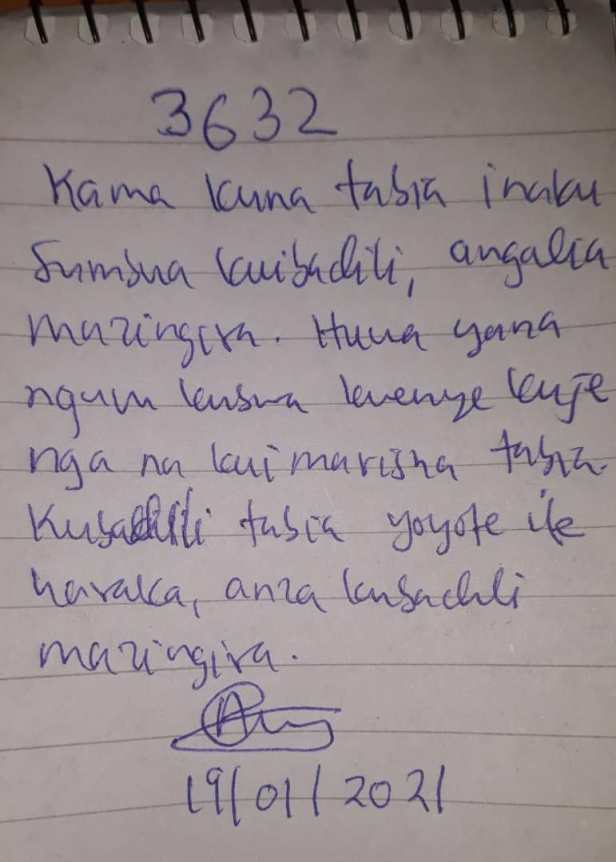 3632
Kama kuna tabia inaku
sumbua kuibadili, angalia
mazingira. Huwa yana
nguvu kubwa kwenye kuje
nga na kuimarisha tabia.
Kubadili tabia yoyote ile
haraka, anza kubadili
mazingira.
19/01/2021